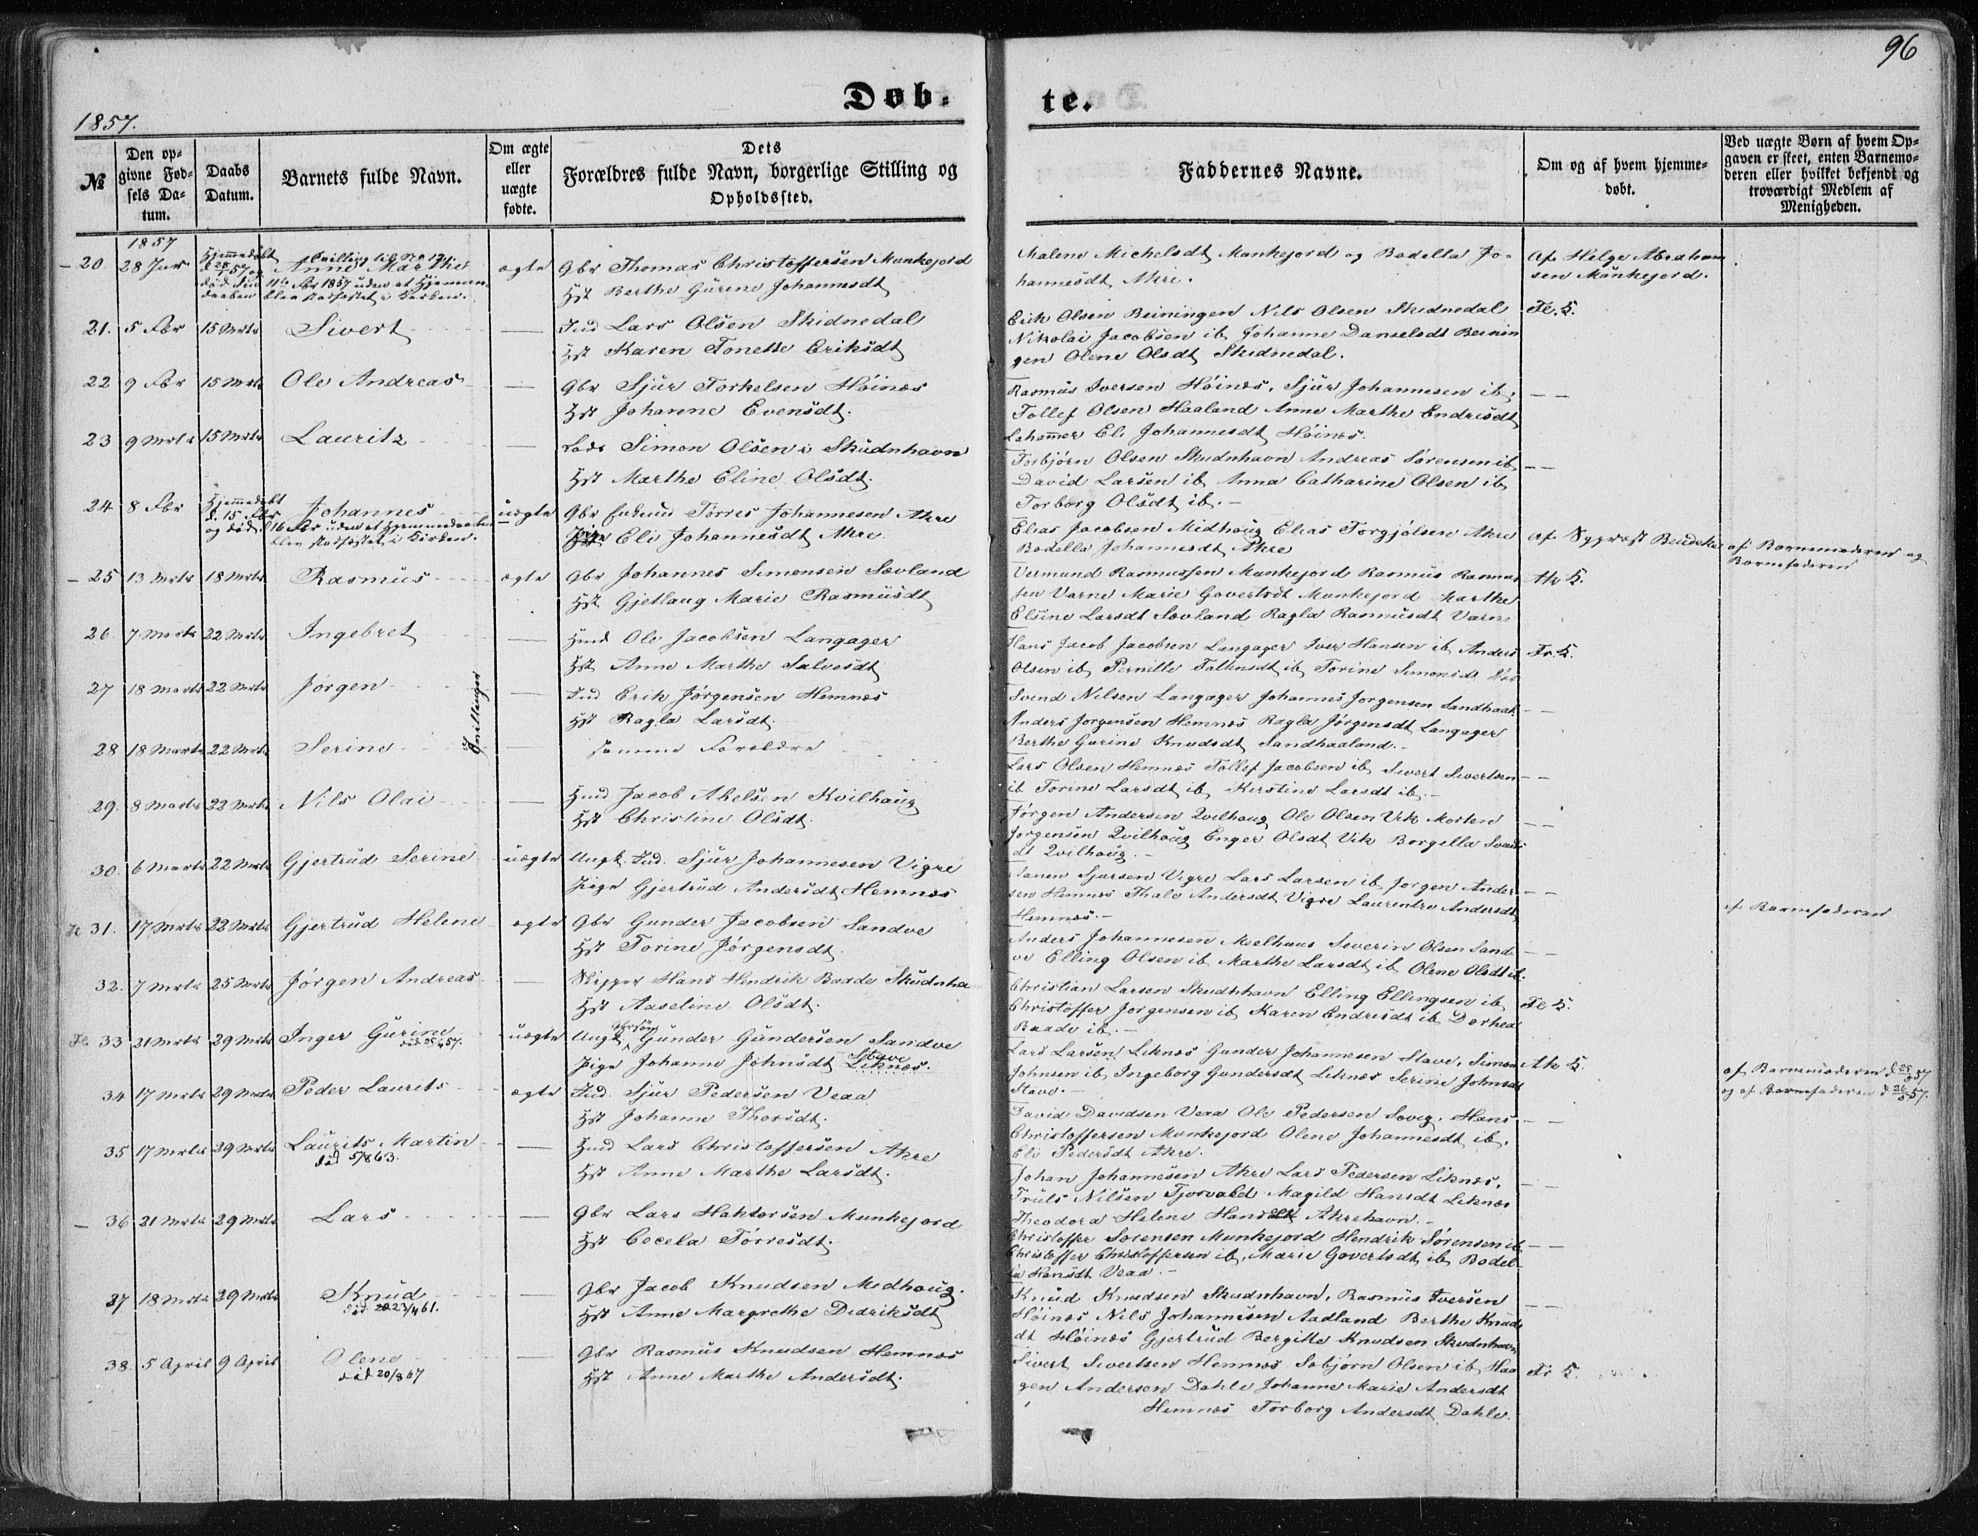 96
1857.
Døb-
te.
№
Den op-
givne Fød-
sels Da-
tum.
Daabs
Datum.
Barnets fulde Navn.
Om ægte
eller
uægte
fødte.
Dets
Forældres fulde Navn, borgerlige Stilling og
Opholdssted.
Faddernes Navne.
Om og af hvem hjemme-
døbt.
Ved uægte Børn af hvem Op-
gaven er skeet, enten Barnemo-
deren eller hvilket bekjendt og
troværdigt Medlem af
Menigheden.
1857
20 28 Jan Hjemmedøbt Anne Marthe ægte Gbr Thomas Christoffersen Munkejord
Hst Berthe Gurine Johannesdt
Malene Michelsdt Munkejord og Bodella Jo-
hannesdt Akre.
Af Helge Abraham
sen Munkejord.
21. 5 Fbr 15 Mrts Sivert — Ind Lars Olsen Skidnedal
Hst Karen Tonette Eriksdt
Erik Olsen Beiningen Nils Olsen Skidnedal
Nikolai Jacobsen ib Johanne Danielsdt Beinin
gen Olene Olsdt Skidnedal.
Fe. K.
22 9 Fbr 15 Mrts Ole Andreas — Gbr Sjur Torkelsen Høines
Hst Johanne Evensdt.
Rasmus Iversen Høines, Sjur Johannesen ib,
Tollef Olsen Haaland Anne Marthe Endresdt
Eli Johannesdt Høines.
— —
23 9 Mrts 15 Mrts Lauritz — Lods Simon Olsen i Skudnhavn
Hst Marthe Eline Olsdt.
Torbjørn Olsen Skudnhavn Andreas Sørensen ib
David Larsen ib Anna Catharine Olsen ib
Torborg Olsdt ib.
— —
24 8 Fbr Hjemmedøbt d. 15 Fbr og død Johannes uægte Gbr Enkemd Torres Johannesen Akre
Pige Eli Johannesdt Akre.
blev stadfæstet i Kirken.
Elias Jacobsen Midhoug Elias Torgjølsen Akre
Bodella Johannesdt Akre
af Barnemoderen og
Barnefaderen
25 13 Mrts 18 Mrts Rasmus ægte Gbr Johannes Simonsen Sævland
Hst Gjetlaug Marie Rasmusdt
Vermund Rasmussen Munkejord Rasmus Rasmus
sen Varne Marie Govertsdt Munkejord Marthe
Elsine Larsdt Sævland Ragla Rasmusdt Varne
Ak K.
26 7 Marts 22 Mrts Ingebret — Huusmd Ole Jacobsen Langager
Hst Anne Marthe Salvesdt
Hans Jacob Jacobsen Langager Iver Hansen ib Anders
Olsen ib Pernille Tallaksdt ib Torine Simonsdt
Fr. K.
27 18 Marts 22 Mrts Jørgen — Ind Erik Jørgensen Hemnes
Hst Ragla Larsdt.
Tvillinger
Svend Nilsen Langager Johannes Jorgensen Sandhaal.
Anders Jorgensen Hemnes Ragla Jørgensdt Langager
Berthe Gurine Knudsdt Sandhaaland.
— —
28 18 Marts 22 Mrts Serine — samme Forældre
Lars Olsen Hemnes Tollef Jacobsen ib Sivert Sivertsen
ib Torine Larsdt ib Kerstine Larsdt ib.
— —
29. 8 Marts 22 Mrts Nils Olai — Hmd Jacob Abelsen Kvilhaug
Hst Christine Olsdt.
Jørgen Andersen Qvilhoug Ole Olsen Vik Morten
Jorgensen Qvilhoug Enger Olsdt Vik Borgella Svens
dt Qvilhoug.
— —
30. 6 Marts 22 Mrts Gjertrud Serine uægte Ungk. Ind. Sjur Johannesen Vigre
Pige Gjertrud Andersdt Hemnes
Sjursen Vigre Lars Larsen ib Jorgen Ander-
sen Hemnes Thale Andersdt Vigre Laurentze Andersdt
Hemnes.
— —
af Barnefaderen
31. 17 Mrts 22 Mrts Gjertrud Helene ægte Gbr Gunder Jacobsen Sandve
Hst Torine Jørgensdt.
Anders Johannesen Melhuus Severin Olsen Sand-
ve Elling Olsen ib Marthe Larsdt ib Olene Olsdt ib.
—
32. 7 Mrts 25 Mrts Jørgen Andreas — Skipper Hans Hendrik Baade Skudnha
Hst Aaseline Olsdt.
Christian Larsen Skudnhavn Elling Ellingsen ib
Christoffer Jorgensen ib Karen Endresdt ib Dorhea
Baade ib.
Fe K.
33 21 Mrts 29 Mrts Inger Gurine uægte Ungk Gunder Gundersen Sandve
Pige Johanne Johnsdt Stave Liknes.
Lars Larsen Liknes Gunder Johannesen Stave, Simon
Johnsen ib Ingeborg Gundersdt Liknes Serine Johnsdt
Stave.
Ak K.
af Barnemoderen d
og af Barnefaderen d
34 17 Mrts 29 Mrts Peder Laurits ægte Ind. Sjur Pedersen Veaa
Hst Johanne Thorsdt.
David Davidsen Veaa Ole Pedersen Hans
Christoffersen Munkejord Olene Johannesdt ib,
Eli Pedersdt Akre.
— —
35 17 Mrts 29 Mrts Laurits Martin — Hmd Lars Christoffersen Akre
død 5/8 63. Hst Anne Marthe Larsdt.
Johan Johannesen Akre Lars Pedersen Liknes,
Truls Nilsen Tjosvold Magild Hansdt Liknes
Theodora Helene Hansdt Akrehavn.
— —
36 21 Mrts 29 Mrts Lars — Gbr Lars Haktorsen Munkejord
Hst Cecela Torresdt.
Christoffer Sørensen Munkejord Hendrik Sørensen ib
Christoffer Christoffersen ib, Marie Govertsdt ib Bodel-
la Hansdt Veaa.
— —
37 18 Mrts 29 Mrts Knud — Gbr Jacob Knudsen Medhoug.
død 23/4 61. Hst Anne Margrethe Didriksdt
Knud Knudsen Skudnhavn, Rasmus Iversen
Høines Nils Johannesen Aadland Berthe Knuds
dt Høines Gjertrud Bergitte Knudsen Skudnhavn
— —
38. 5 April 9 April Olene — Gbr Rasmus Knudsen Hemnes
død 20/8 67 Hst Anne Marthe Andersdt.
Sivert Sivertsen Hemnes Sebjørn Olsen ib Haa
gen Andersen Dahle Johanne Marie Andersdt
Hemnes Torborg Andersdt Dahle.
Fr K.